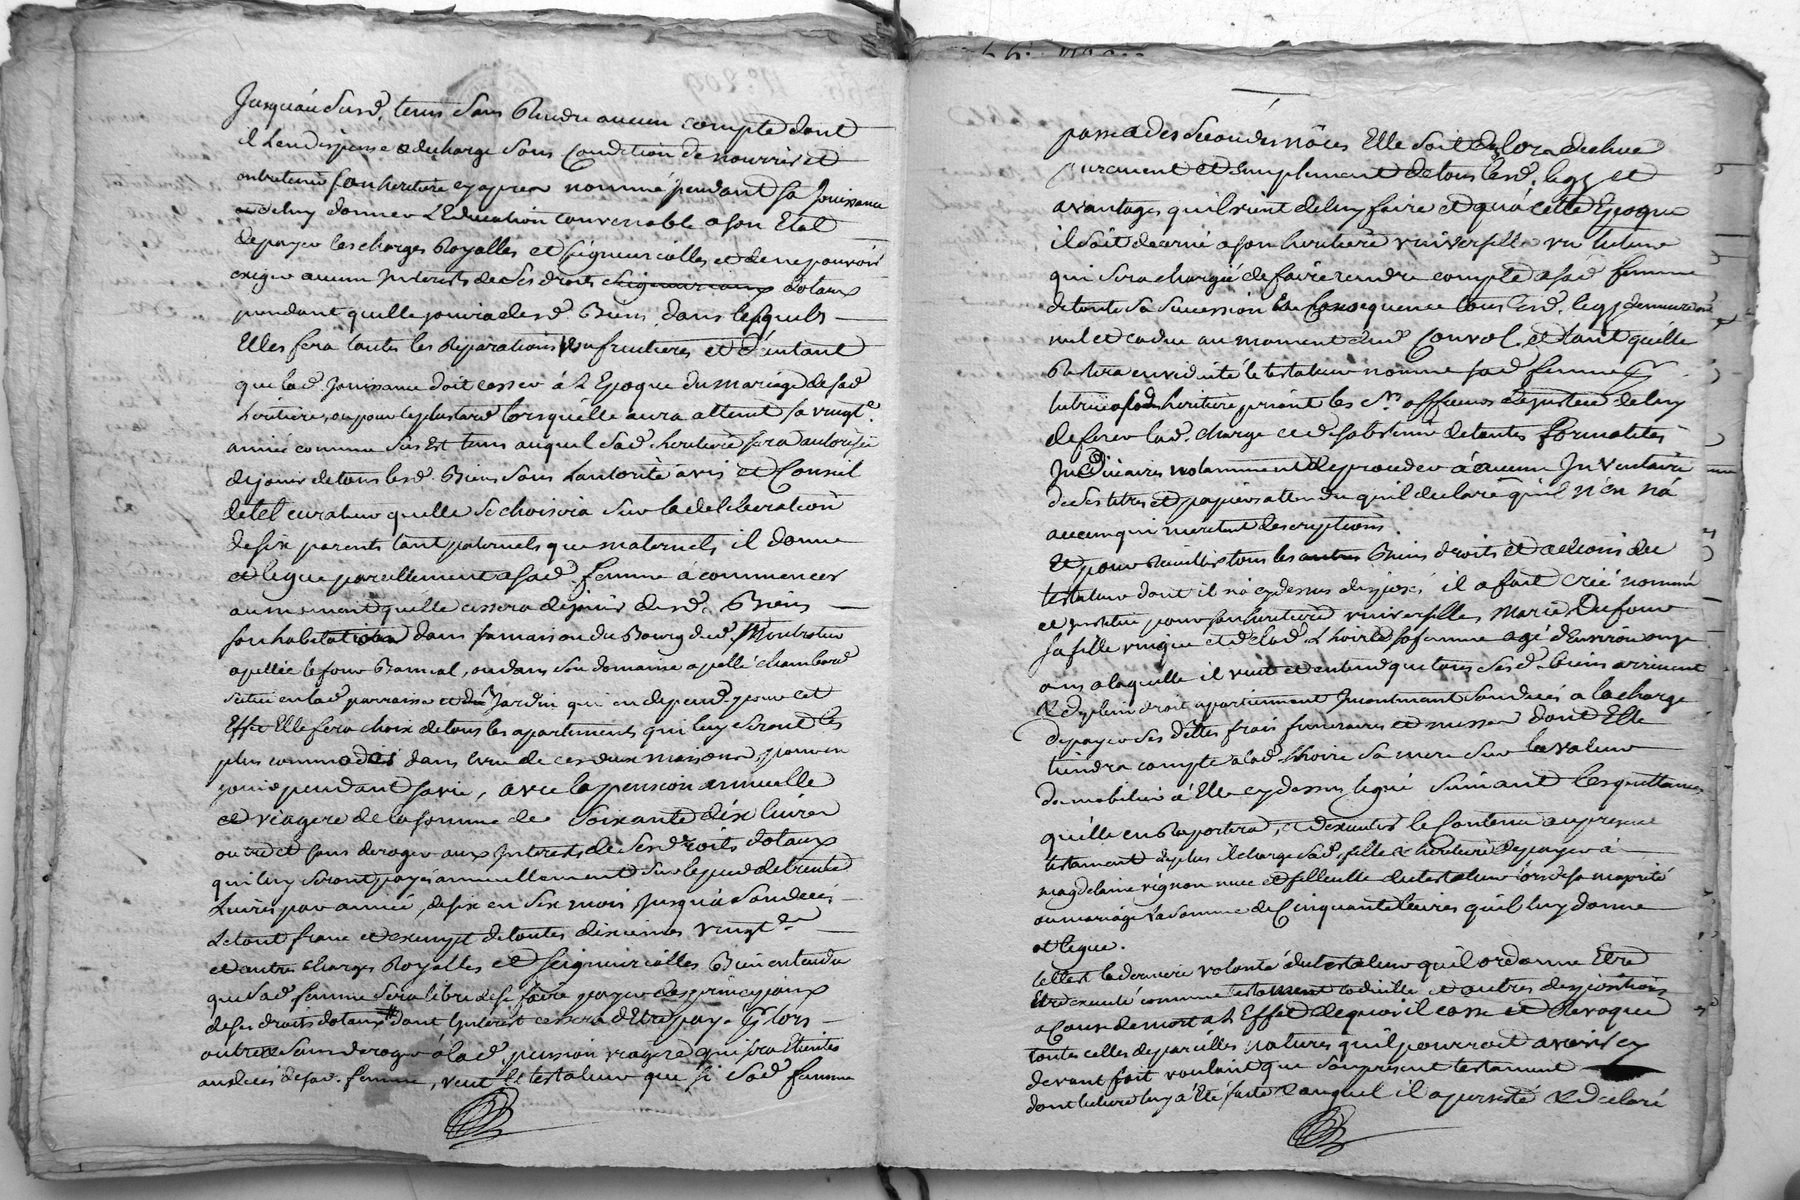 Jusquau susd. tems sans Rendre aucun compte dont
il L'en dispense et decharge sous Condition de nourrir et
entretenir son heritiere cy apres nommé pendant sa Jouissance
et de luy donner L'Education convenable a son Etat
de payer les charges Royalles et seigneurialles et de ne pouvoir
exiger aucun Interets de ses droits seigneuriaux dotaux
pendant quelle jouira desd. Biens, dans lesquels
Elle fera toutes les Reparations usufruitieres et d'autant
que lad. Jouissance doit cesser à L'Epoque du mariage de sad.
heritiere, ou pour le plus tard lorsquelle aura atteint sa vingt.e
année comme sus est tems auquel sad. heritiere sera autorisée
de jouir de tous lesd. Biens sous Lautorité avis et Conseil
de tel curateur quelle se choisira sur la deliberation
de six parents tant paternels que maternels, il donne
et legue pareillement a sad. femme à commencer
au moment quelle cessera de jouir desd. Biens
son habitation dans sa maison du Bourg dud. Montrotier
apellée le four Bannal, ou dans son domaine apellé chambard
situé en lad. parroisse et du Jardin qui en depend. pour cet
Effet Elle fera choix de tous les apartements qui luy seront les
plus commodes dans l'une de ces deux maisons, pour en
jouir pendant sa vie, avec la pension annuelle
et viagere de la somme de soixante dix livres
outre et sans deroger aux Interets de ses droits dotaux
qui luy seront payés annuellement sur le pied de trente
Livres par année, de six en six mois jusqu'à son deces
Le tout franc et exempt de toutes dixiemes vingt.e
et autres charges Royalles et seigneurialles Bien entendu
que sad. femme sera libre de se faire payer des principaux
de ses droits dotaux dont Interet cessera d'Etre payé lors
outre et sans deroger à lad. pension viagere qui sera Eteinte
au deces de sad. femme, veut le testateur que si sad. femme
passe a des secondes nôces Elle soit des lors dechue
purement et simplement de tous lesd. legs et
avantages quil vient de luy faire et qua cette Epoque
il soit decerné a son heritiere universelle un tuteur
qui sera chargé de faire rendre compte a sad. femme
de toute sa succession En Consequence tous lesd. legs demeureront
nul et caduc au moment dud. Convol, et tant quelle
Restera en viduité le testateur nomme sad. femme
tutrice a sad. heritiere priant les Mrs. officiers de justice de luy
deferer lad. charge et de sabstenir de toutes formalités
Judiciaires notamment de proceder à aucun Inventaire
de ses titres et papiers attendu quil declare quil n'en n'a
aucun qui meritent descriptions.
Et pour Recueillir tous les autres Biens droits et actions du
testateur dont il n'a cy dessus disposé, il a fait créé nommé
et institué pour son heritiere universelle Marie Dufour
sa fille unique et de lad. Lhoire sa femme agé d'Environ onze
ans a laquelle il veut et entend que tous sesd. biens arrivent
et de plein droit apartiennent Incontinant son deces a la charge
de payer ses dettes frais funeraires et messes dont Elle
tiendra compte a lad. Lhoire sa mere sur la valeur
du mobilier à Elle cy dessus legué suivant les quittances
quelle en Raportera, et d'executer le Contenu au present
testament de plus il charge sad. fille et heritiere de payer a
magdelaine vignon niece et filleulle du testateur lors de sa majorité
ou mariage la somme de Cinquante livres quil luy donne
et legue.
telle est la derniere volonté du testateur quil ordonne Etre
Etre executé comme testament codicille et autres dispositions
a Cause de mort a L'Effet de quoi il casse et Revoque
toutes celles de pareilles natures quil pourroit avoir cy
devant fait voulant que son present testament
dont lecture luy a Eté faite et auquel il a persisté et declaré